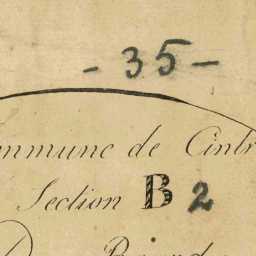 - 35 -
ommune de Cintr
Section B 2